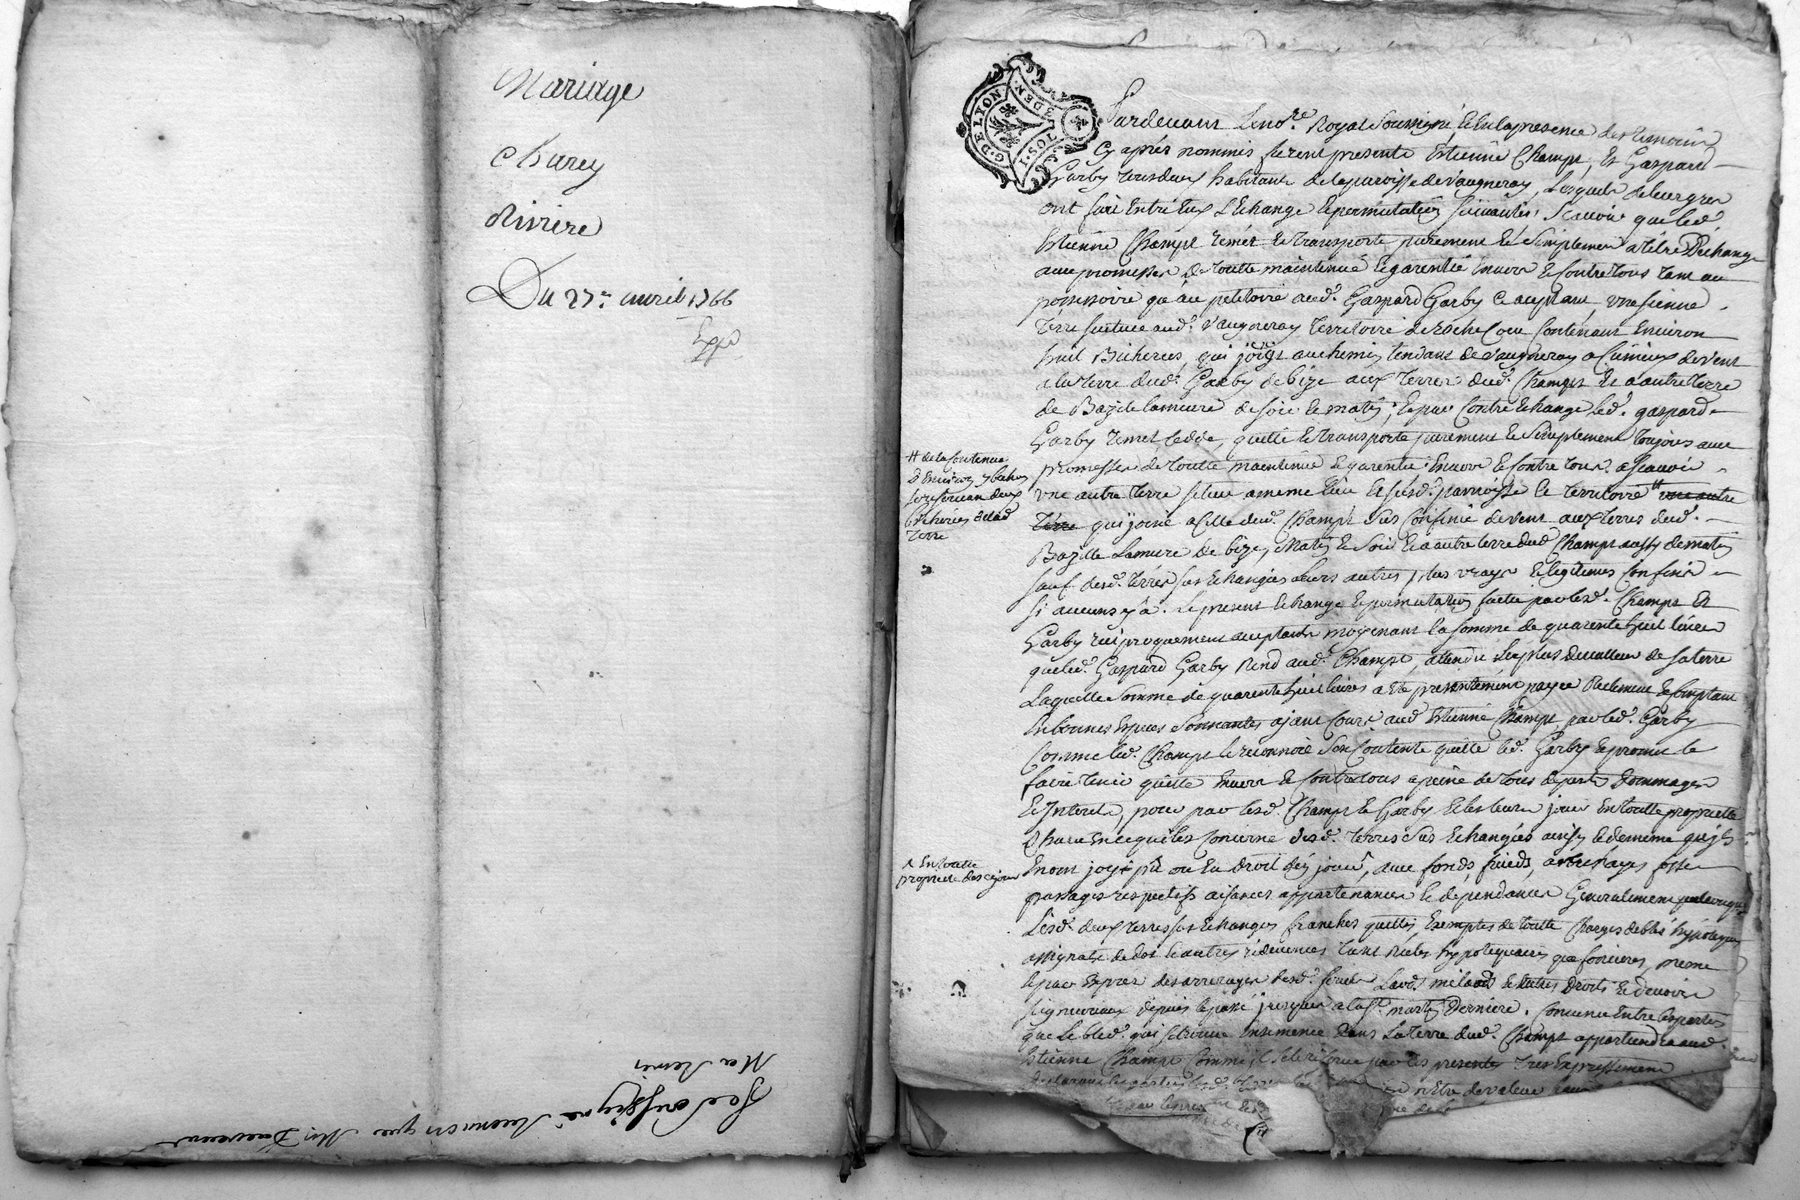 Mariage
Charey
Riviere
Du 27e avril 1766
Expé
Je Soussigné
G. DE LYON
DEN.
Pardevant Le nore. Royal Soussigné et en la presence des temoins
Cy après nommés furent presents Estienne Champt, et Gaspard
Garby tous deux habitants de la paroisse de Vaugneray, Lesquels de leur gres
ont fait entre Eux L'Echange et permutation suivantes, scavoir que led.
Estienne Champt remet et transporte purement et simplement a titre D'échange
avec promesses de toutte maintenue et garentie envers et contre tous tant au
possessoire qu'au petitoire aud. Gaspard Garby Acceptant une sienne
terre scituée aud. Vaugneray territoire de contenant Environ
huit Bicherées, qui joigt au chemin tendant de Vaugneray a de vent
a la terre dud. Garby de bize aux terres dud. Champt et a autre terre
de Bazile Lamure de soir et matin; et par contre Echange led. gaspard
Garby remet cedde, quitte et transporte purement et simplement toujours avec
promesses de toutte maintenue et garentie Envers et contre tous. a scavoir
une autre terre scituée a meme lieu et susd. parroisse et territoire # une autre
terre qui joint a celle dud. Champt sus confinée de vent aux terres dud.
Bazille Lamure de bize, Matin et Soir et a autre terre dud. Champt aussy de matin
# de la contenue
D'Environ
bicherées de lad.
terre
sauf desd. terres sus Echangées Leurs autres plus vrays et legitimes confins
si aucuns y a. Le present Echange et permutation faitte par lesd. Champt et
Garby reciproquement acceptants moyenant la somme de quarente huit livres
que led. Gaspard Garby Rend aud. Champt, attendu Le plus de valleur de sa terre
Laquelle somme de quarente huit livres a été presentement payée Réelement et comptant
En bonnes Especes sonnantes ajant cours aud. Estienne Champt, par led. Garby
Comme led. Champt le reconnoit s'en contente quitte led. Garby et promet le
faire tenir quitte Envers et contre tous a peine de tous depens dommages
et Interets, pour par lesd. Champt et Garby et les leurs jouir En toutte proprieté
Chacun En ce qui les concerne desd. terres sus Echangées ainsy et de meme qu'ils
^ En toutte
propriete
En ont joyt pû ou Eu droit d'en jouir, avec fonds, fruids, arbrerages,
passages respectifs aisances appartenances et dependances Generalement quelconques
Lesd. deux terres sus Echangées franches quittes Exemptes de toutte Charges debtes hypoteques
de dot et autres redevances tant hypotequaires que foncieres, meme
et par Exprès des arrerages desd. et autres Droits et devoirs
seigneuriaux depuis le passé jusques a la St. martin Derniere. Convenu Entre les parties
que Le bled. qui se trouve Ensemencé Dans La terre dud. Champt appartiendra aud.
Estienne Champt Comme par les presentes tres Expressement
de valeur